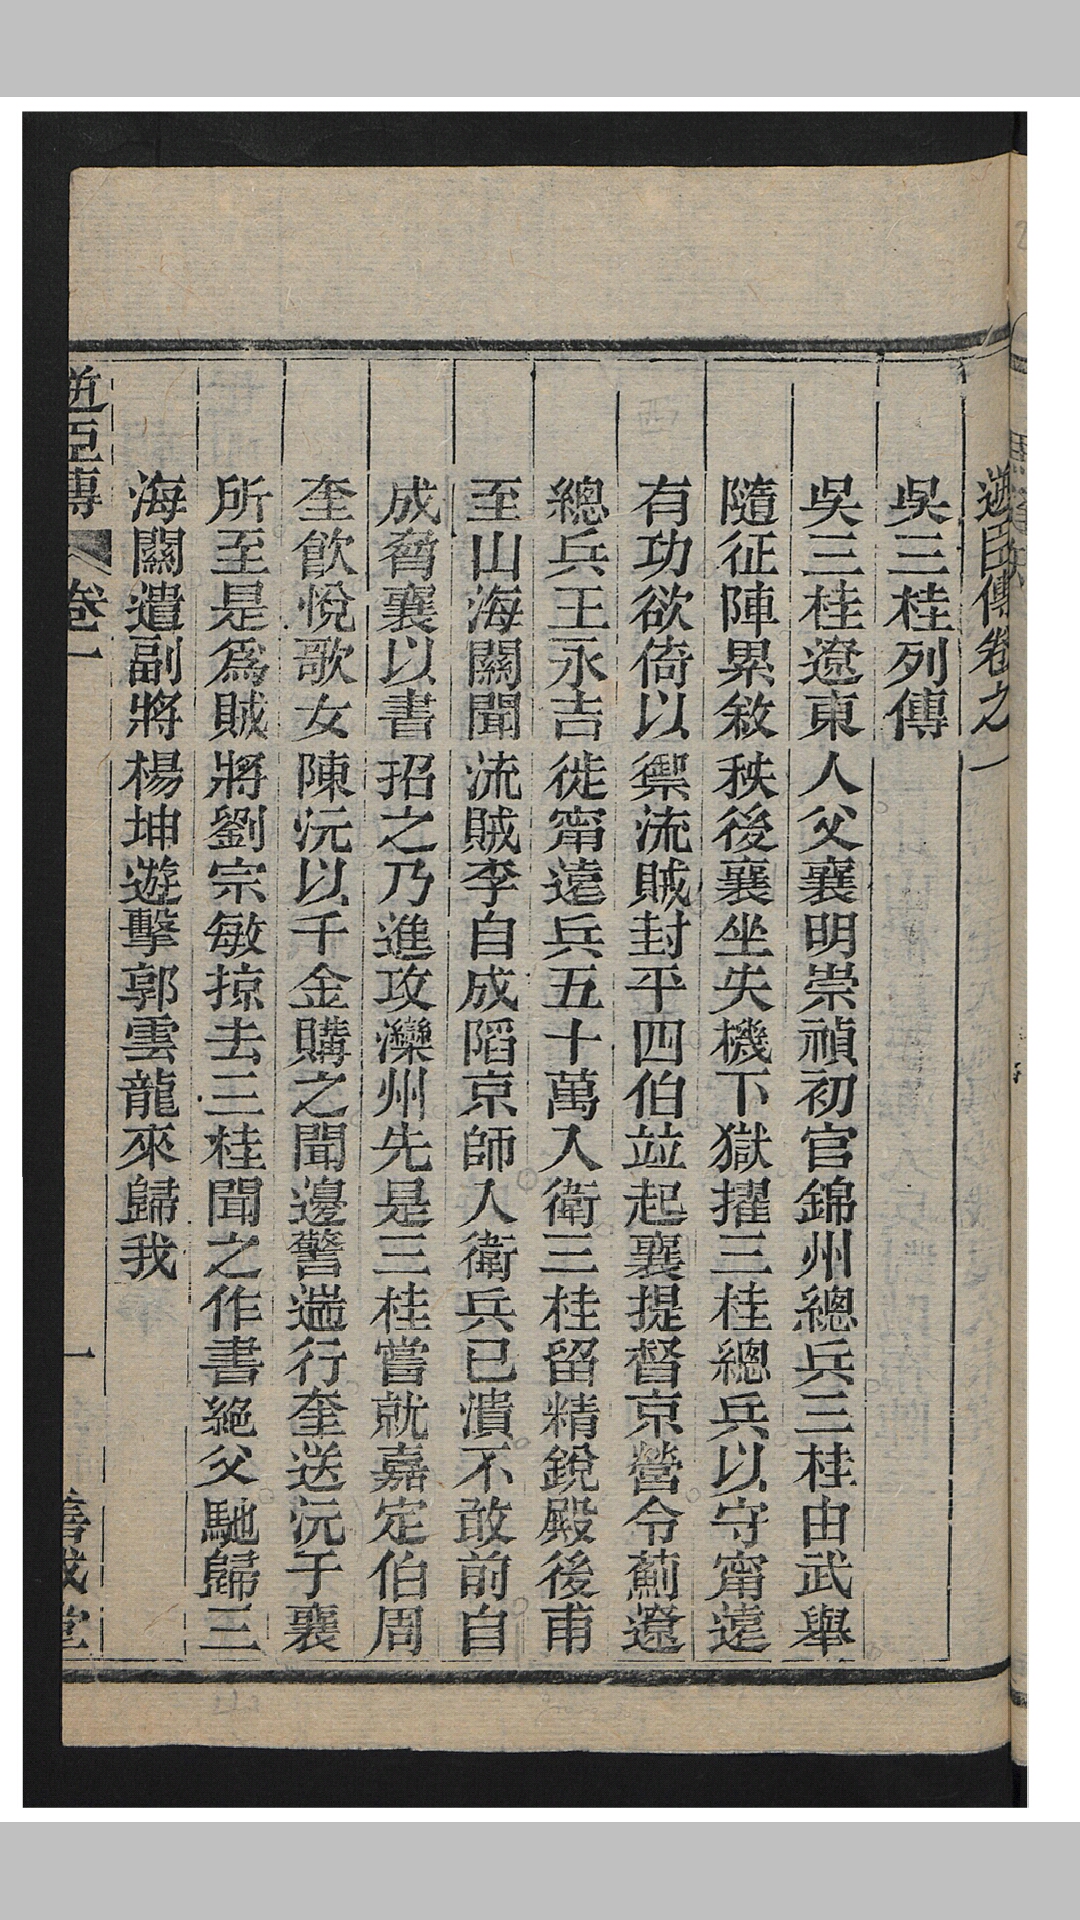 逆臣傳卷之一
吳三桂列傳
吳三桂遼東人父襄明崇禎初官錦州總兵三桂由武舉
隨征陣累敘秩後襄坐失機下獄擢三桂總兵以守甯遠
有功欲倚以禦流賊封平四伯並起襄提督京營令薊遼
總兵王永吉徙甯遠兵五十萬入衛三桂留精銳殿後甫
至山海關聞流賊李自成陷京師人衛兵已潰不敢前自
成脅襄以書招之乃進攻灤州先是三桂嘗就嘉定伯周
奎飲悅歌女陳沅以千金購之聞邊警遄行奎送沅于襄
所至是爲賊將劉宗敏掠去三桂聞之作書絕父馳歸三
海關遣副將楊坤遊擊郭雲龍來歸我
逆臣傳 卷一 一 善成堂